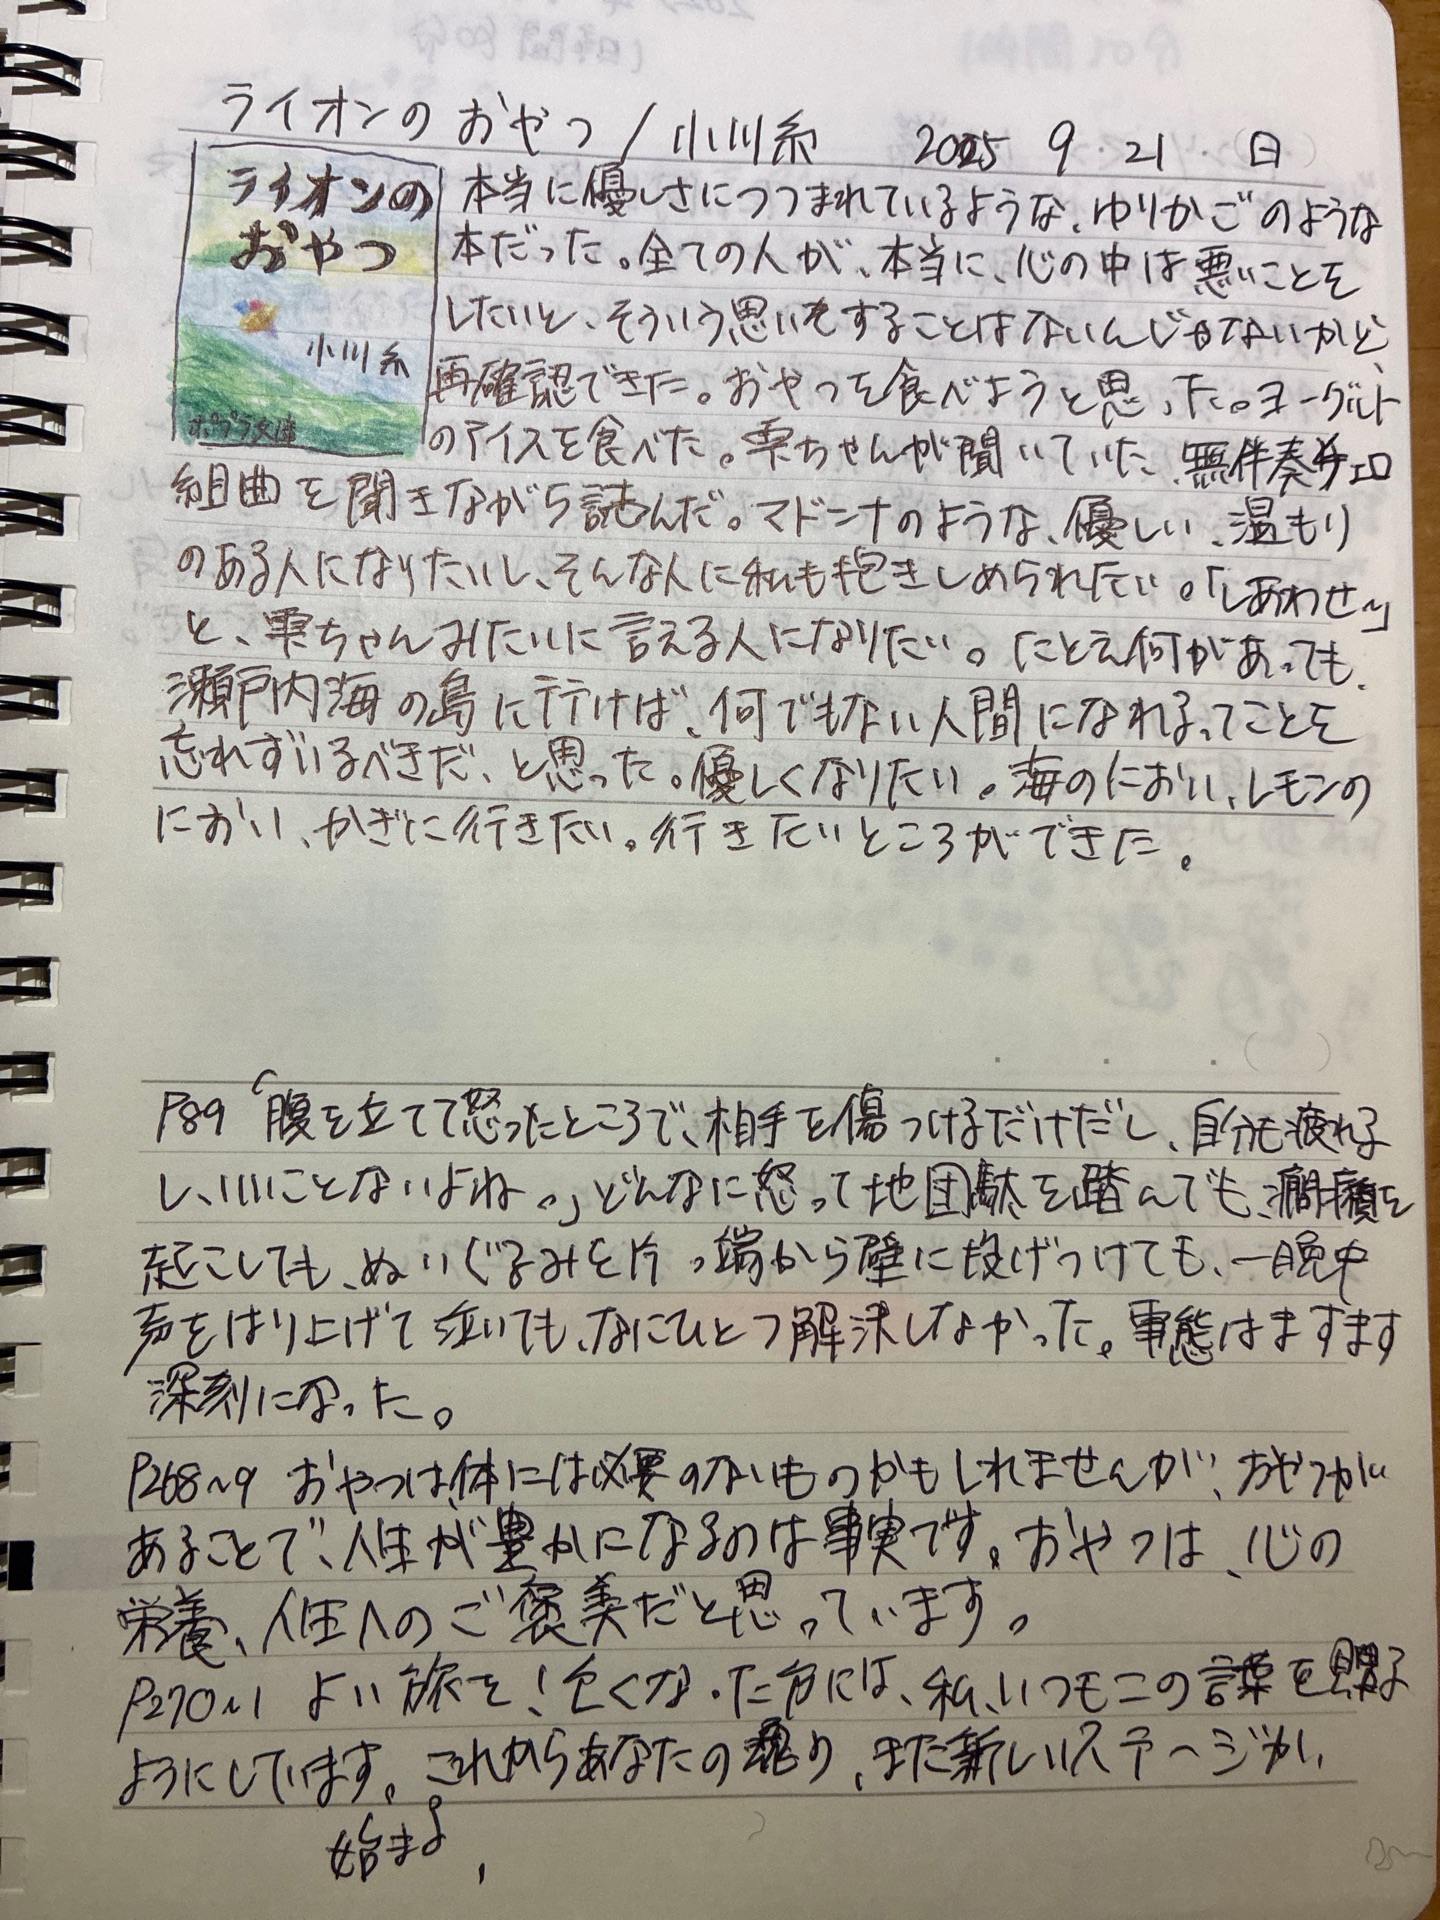 ライオンのおやつ/小川糸 2025 9 21 日
ライオンの
おやつ
小川糸
ポプラ文庫
本当に優しさにつつまれているような、ゆりかごのような
本だった。全ての人が、本当に、心の中は悪いことを
したいと、そういう思いをすることはないんじゃないかと、
再確認できた。おやつを食べようと思った。ヨーグルト
のアイスを食べた。雫ちゃんが聞いていた、無伴奏チェロ
組曲を聞きながら読んだ。マドンナのような、優しい、温もり
のある人になりたいし、そんな人に私も抱きしめられたい。「しあわせ〜」
と、雫ちゃんみたいに言える人になりたい。たとえ何があっても、
瀬戸内海の島に行けば、何でもない人間になれるってことを
忘れずいるべきだ、と思った。優しくなりたい。海のにおい、レモンの
におい、かぎに行きたい。行きたいところができた。
P89 「腹を立てて怒ったところで、相手を傷つけるだけだし、自分も疲れる
し、いいことないよね。」どんなに怒って地団駄を踏んでも、癇癪を
起こしても、ぬいぐるみを片っ端から壁に投げつけても、一晩中
声をはり上げて泣いても、なにひとつ解決しなかった。事態はますます
深刻になった。
P268〜9 おやつは、体には必要のないものかもしれませんが、おやつが
あることで、人生が豊かになるのは事実です。おやつは、心の
栄養、人生へのご褒美だと思っています。
P270〜1 よい旅を!亡くなった方には、私、いつもこの言葉を贈る
ようにしています。これからあなたの魂の、また新しいステージが、
始まる、